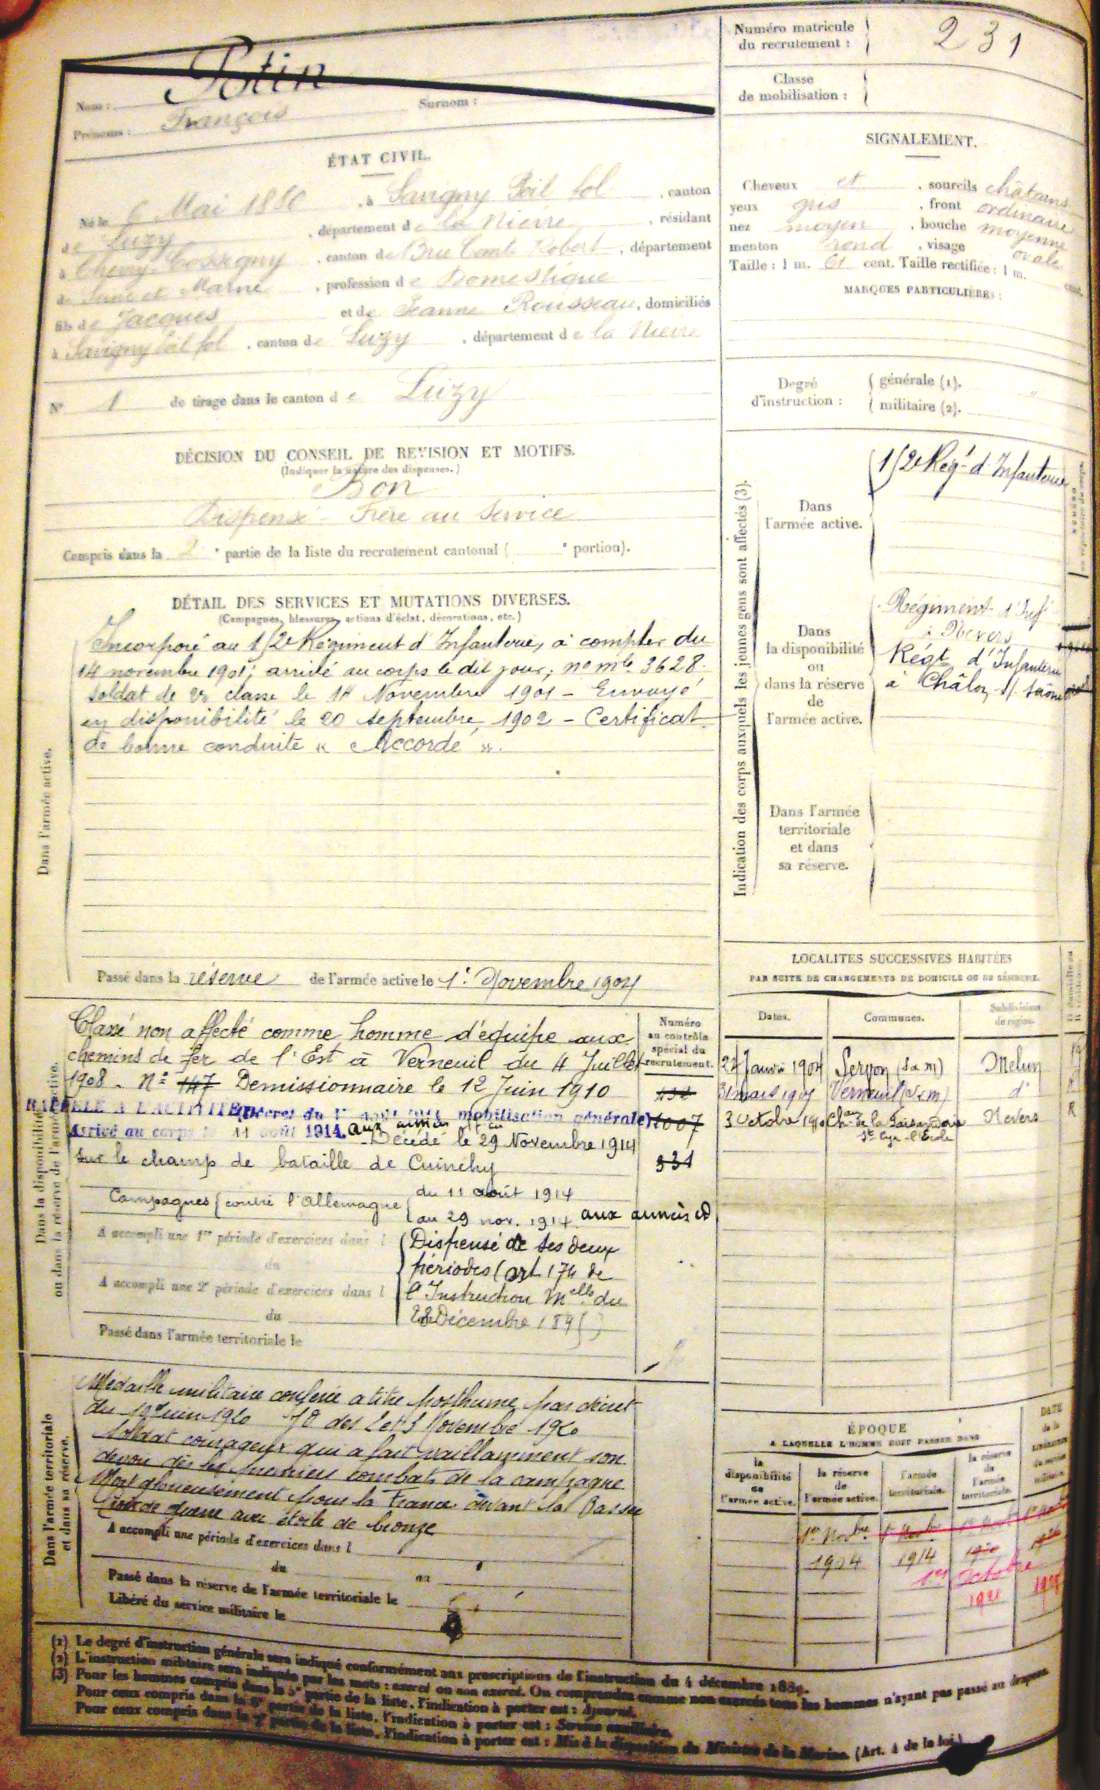 Numéro matricule
du recrutement : 231
Classe
de mobilisation :
Nom : Potin
Prénoms : François Surnom :
ÉTAT CIVIL.
Né le 6 Mai 1880, à Savigny Poil fol, canton
de Luzy, département de la Nièvre, résidant
à Chevry-Cossigny, canton de Brie Comte Robert, département
de Seine et Marne, profession de Domestique
fils de Jacques et de Jeanne Rousseau, domiciliés
à Savigny Poil fol, canton de Luzy, département de la Nièvre
N° 1 de tirage dans le canton de Luzy
DÉCISION DU CONSEIL DE REVISION ET MOTIFS.
(Indiquer la nature des dispenses.)
Bon
Dispensé Frère au service
Compris dans la 2e partie de la liste du recrutement cantonal ( e portion).
SIGNALEMENT.
Cheveux et, sourcils châtains
yeux gris, front ordinaire
nez moyen, bouche moyenne
menton rond, visage ovale
Taille : 1 m. 61 cent. Taille rectifiée : 1 m. cent.
MARQUES PARTICULIÈRES :
Degré
d'instruction :
générale (1).
militaire (2).
DÉTAIL DES SERVICES ET MUTATIONS DIVERSES.
(Campagnes, blessures, actions d'éclat, décorations, etc.)
Dans l'armée active.
Incorporé au Régiment d'Infanterie, à compter du
14 novembre 1901; arrivé au corps le dit jour; no mle 3628.
soldat de 2e classe le 14 Novembre 1901 - Envoyé
en disponibilité le 20 septembre 1902 - Certificat
de bonne conduite « Accordé ».
Passé dans la réserve de l'armée active le 1er Novembre 1904
Indication des corps auxquels les jeunes gens sont affectés (3).
Dans
l'armée active.
Rég.t d'Infanterie
Dans
la disponibilité
ou
dans la réserve
de
l'armée active.
Régiment d'Inf
à Nevers
Régt d'Infanterie
à Châlon s/ Saône
Dans l'armée
territoriale
et dans
sa réserve.
Dans la disponibilité
ou dans la réserve de l'armée active.
Classé non affecté comme homme d'équipe aux
chemins de fer de l'Est à Verneuil du 4 Juillet
1908. No 147 Démissionnaire le 12 Juin 1910
RAPPELÉ A L'ACTIVITÉ (Décret du 1er août 1914, mobilisation générale)
Arrivé au corps le 11 août 1914. aux armées
Décédé le 29 Novembre 1914
sur le champ de bataille de Cuinchy
Campagnes contre l'Allemagne
du 11 août 1914
au 29 nov. 1914 aux armées
A accompli une 1re période d'exercices dans l
du
A accompli une 2e période d'exercices dans l
du
Dispensé de ses deux
périodes (art 174 de
l'Instruction Melle du
28 Décembre 1895)
Passé dans l'armée territoriale le
Numéro
au contrôle
spécial du
recrutement.
1007
331
LOCALITÉS SUCCESSIVES HABITÉES
PAR SUITE DE CHANGEMENTS DE DOMICILE OU DE RÉSIDENCE.
Dates. Communes. Subdivisions
de région.
Janvier 1904 Servon (S et M) Melun
31 mars 1907 Verneuil (S et M) d°
3 Octobre 1910 Nevers
St Cyr-l'École
Dans l'armée territoriale
et dans sa réserve.
Médaille militaire conférée à titre posthume par décret
du 19 juin 1920 JO des 2 et 3 Novembre 1920
Soldat courageux qui a fait vaillamment son
devoir dès les premiers combats de la campagne
Mort glorieusement pour la France devant La Bassée
Croix de guerre avec étoile de bronze
A accompli une période d'exercices dans l
du au
Passé dans la réserve de l'armée territoriale le
Libéré du service militaire le
ÉPOQUE
A LAQUELLE L'HOMME DOIT PASSER DANS
la
disponibilité
de
l'armée active.
la réserve
de
l'armée active.
l'armée
territoriale.
la réserve
de
l'armée
territoriale.
DATE
de la
LIBÉRATION
du service
militaire.
1er Novbre 1904
1er Novbre 1914
1er Octobre
1921
(1) Le degré d'instruction générale sera indiqué conformément aux prescriptions de l'instruction du 4 décembre 1889.
(2) L'instruction militaire sera indiquée par les mots : exercé ou non exercé. On comprendra comme non exercés tous les hommes n'ayant pas passé au drapeau.
(3) Pour les hommes compris dans la 3e partie de la liste, l'indication à porter est : Ajourné.
Pour ceux compris dans la partie de la liste, l'indication à porter est : Service auxiliaire.
Pour ceux compris dans la partie de la liste, l'indication à porter est : Mis à la disposition du Ministre de la Marine. (Art. 4 de la loi.)